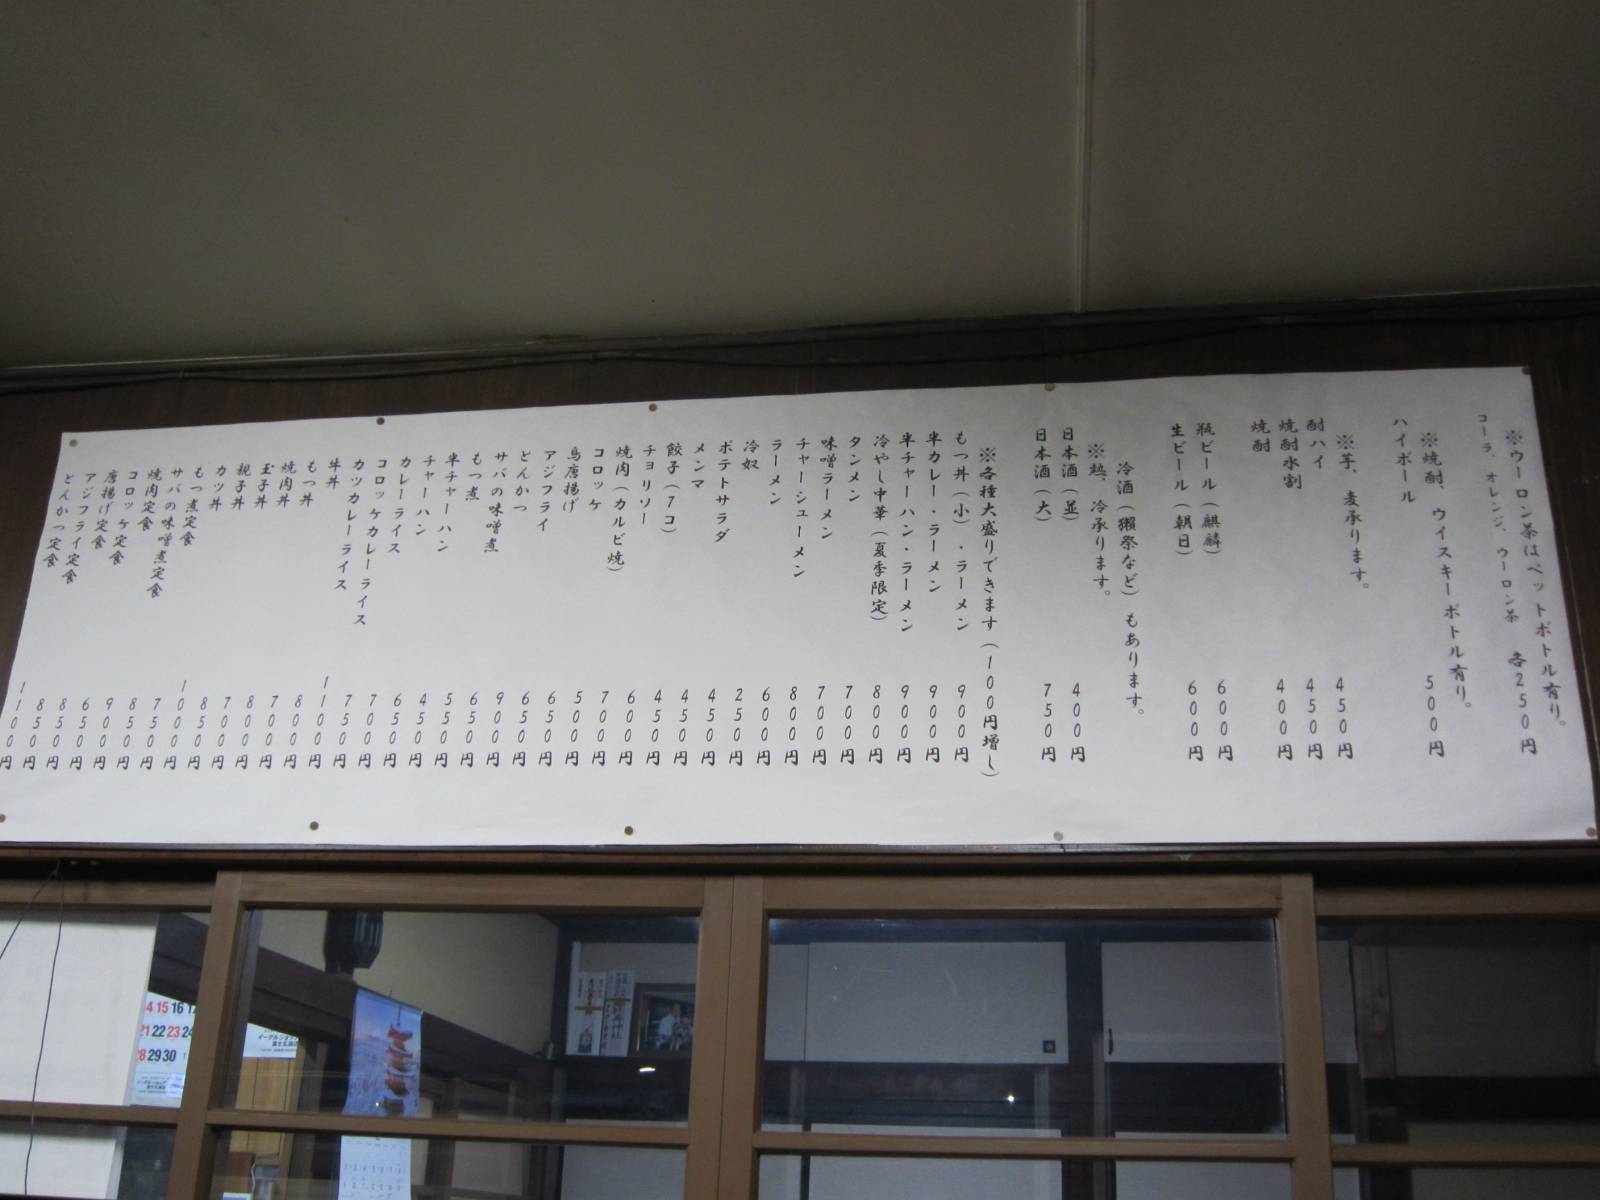 ※ウーロン茶はペットボトル有り。
コーラ、オレンジ、ウーロン茶 各250円
※焼酎、ウイスキーボトル有り。
ハイボール 500円
※芋、麦承ります。
酎ハイ 450円
焼酎水割 450円
焼酎 400円
瓶ビール(麒麟) 600円
生ビール(朝日) 600円
冷酒(獺祭など)もあります。
※熱、冷承ります。
日本酒(並) 400円
日本酒(大) 750円
※各種大盛りできます(100円増し)
もつ丼(小)・ラーメン 900円
半カレー・ラーメン 900円
半チャーハン・ラーメン 900円
冷やし中華(夏季限定) 800円
タンメン 700円
味噌ラーメン 700円
チャーシューメン 800円
ラーメン 600円
冷奴 250円
ポテトサラダ 450円
メンマ 450円
餃子(7コ) 450円
チョリソー 600円
焼肉(カルビ焼) 700円
コロッケ 500円
鳥唐揚げ 650円
アジフライ 650円
とんかつ 900円
サバの味噌煮 650円
もつ煮 550円
半チャーハン 450円
チャーハン 650円
カレーライス 700円
コロッケカレーライス 750円
カツカレーライス 1100円
牛丼 800円
もつ丼 700円
焼肉丼 800円
玉子丼 700円
親子丼 850円
カツ丼 1000円
もつ煮定食 750円
サバの味噌煮定食 850円
焼肉定食 900円
コロッケ定食 650円
唐揚げ定食 850円
アジフライ定食 850円
とんかつ定食 1100円
4 15 16 17
21 22 23 24
28 29 30
イーグルショップ